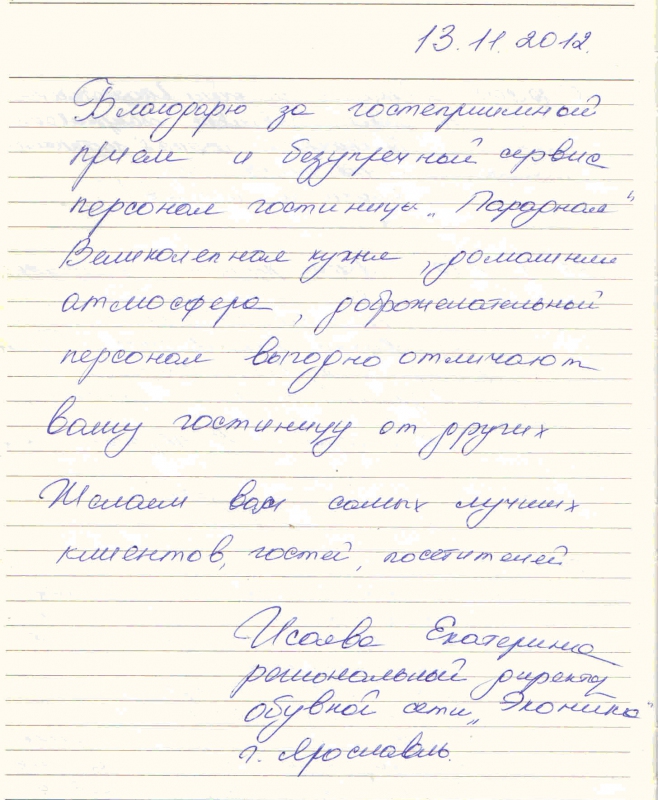 13.11.2012.
Благодарю за гостеприимной
прием и безупречный сервис
персонал гостиницы „Парадная"
Великолепная кухня, домашняя
атмосфера, доброжелательной
персонал выгодно отличают
вашу гостиницу от других
Желаем вам самых лучших
клиентов, гостей, посетителей
Исаева Екатерина
региональный директор
обувной сети „Эконика"
г. Ярославль.